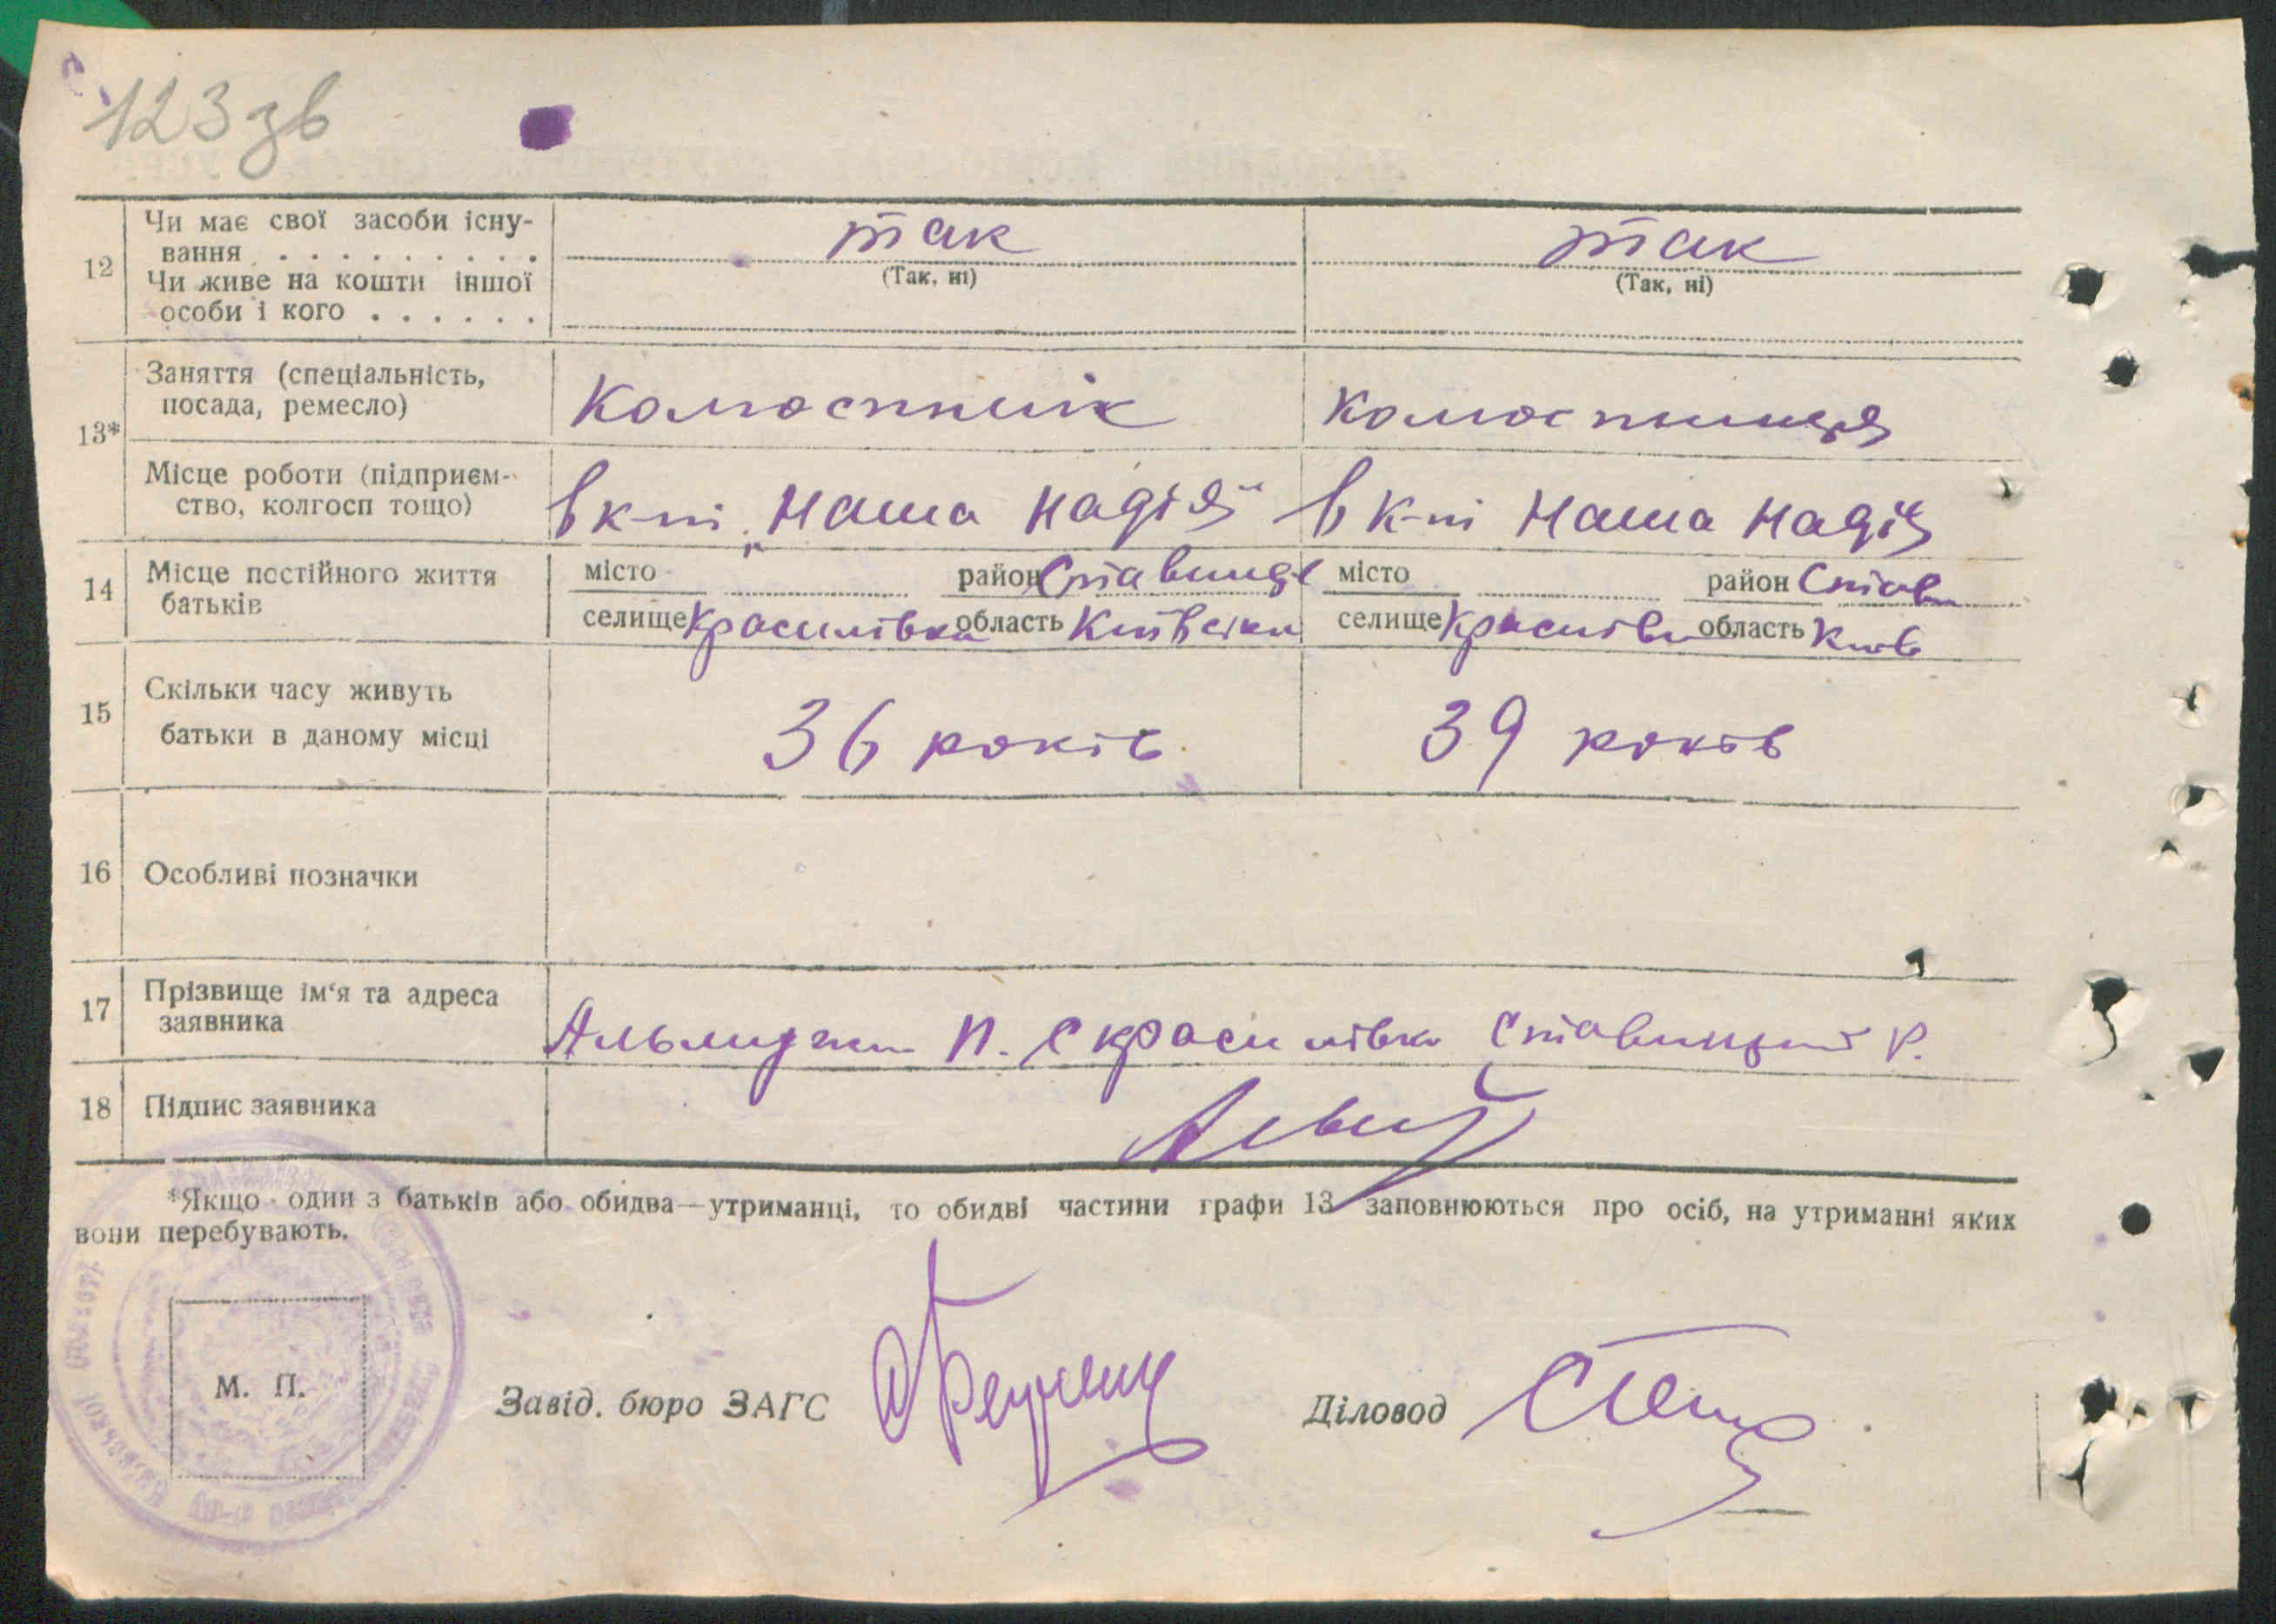 123 зв
12 Чи має свої засоби існу-
вання . . . . . . . . . так так
Чи живе на кошти іншої (Так, ні) (Так, ні)
особи і кого . . . . . .
13* Заняття (спеціальність,
посада, ремесло)
Місце роботи (підприєм-
ство, колгосп тощо) в к-пі „Наша Надія“ в к-пі Наша Надія
14 Місце постійного життя місто район Ставище місто район Став
батьків селище Красилівка область Київська селище область Київ
15 Скільки часу живуть
батьки в даному місці 36 років 39 років
16 Особливі позначки
17 Прізвище ім'я та адреса
заявника П. с Красилівка р.
18 Підпис заявника
*Якщо один з батьків або обидва—утриманці, то обидві частини графи 13 заповнюються про осіб, на утриманні яких
вони перебувають.
М. П.
Завід. бюро ЗАГС Діловод